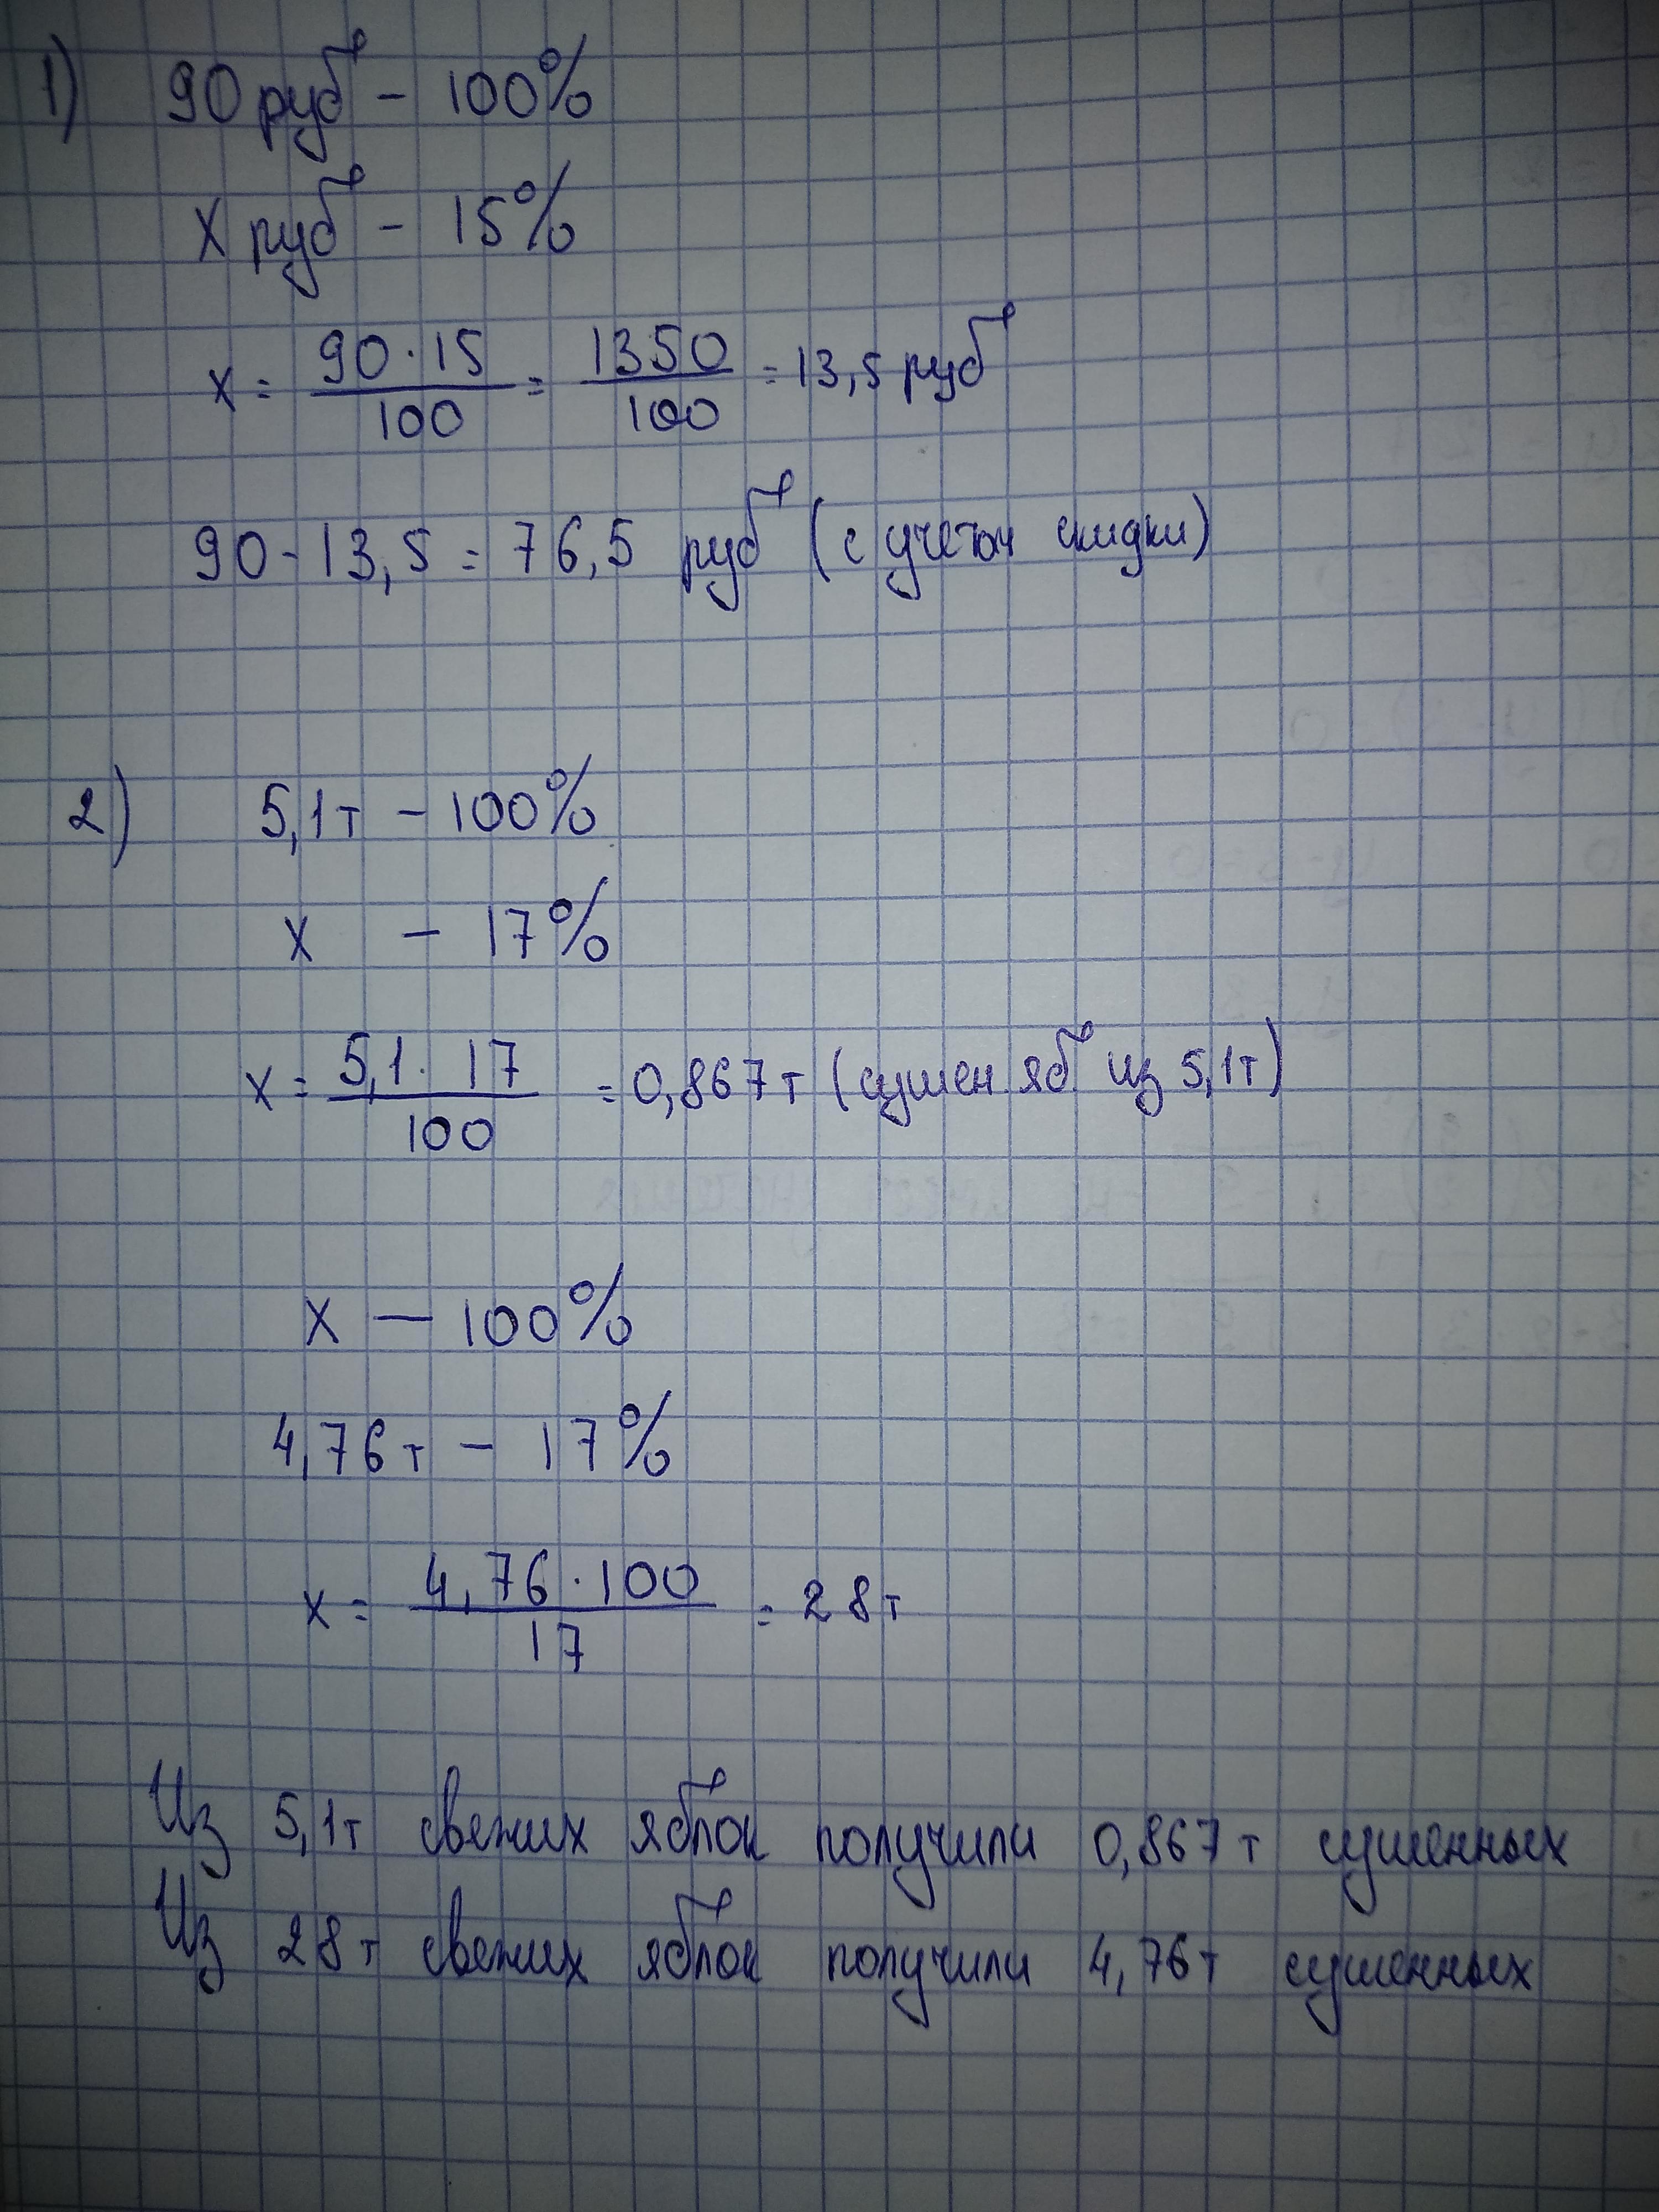 1) 90 руб - 100%
x руб - 15%
x = 90·15/100 = 1350/100 = 13,5 руб
90 - 13,5 = 76,5 руб (с учетом скидки)
2) 5,1т - 100%
x - 17%
x = 5,1·17/100 = 0,867т (сушен. яб из 5,1т)
x — 100%
4,76т - 17%
x = 4,76·100/17 = 28т
Из 5,1т свежих яблок получили 0,867т сушенных
Из 28т свежих яблок получили 4,76т сушенных